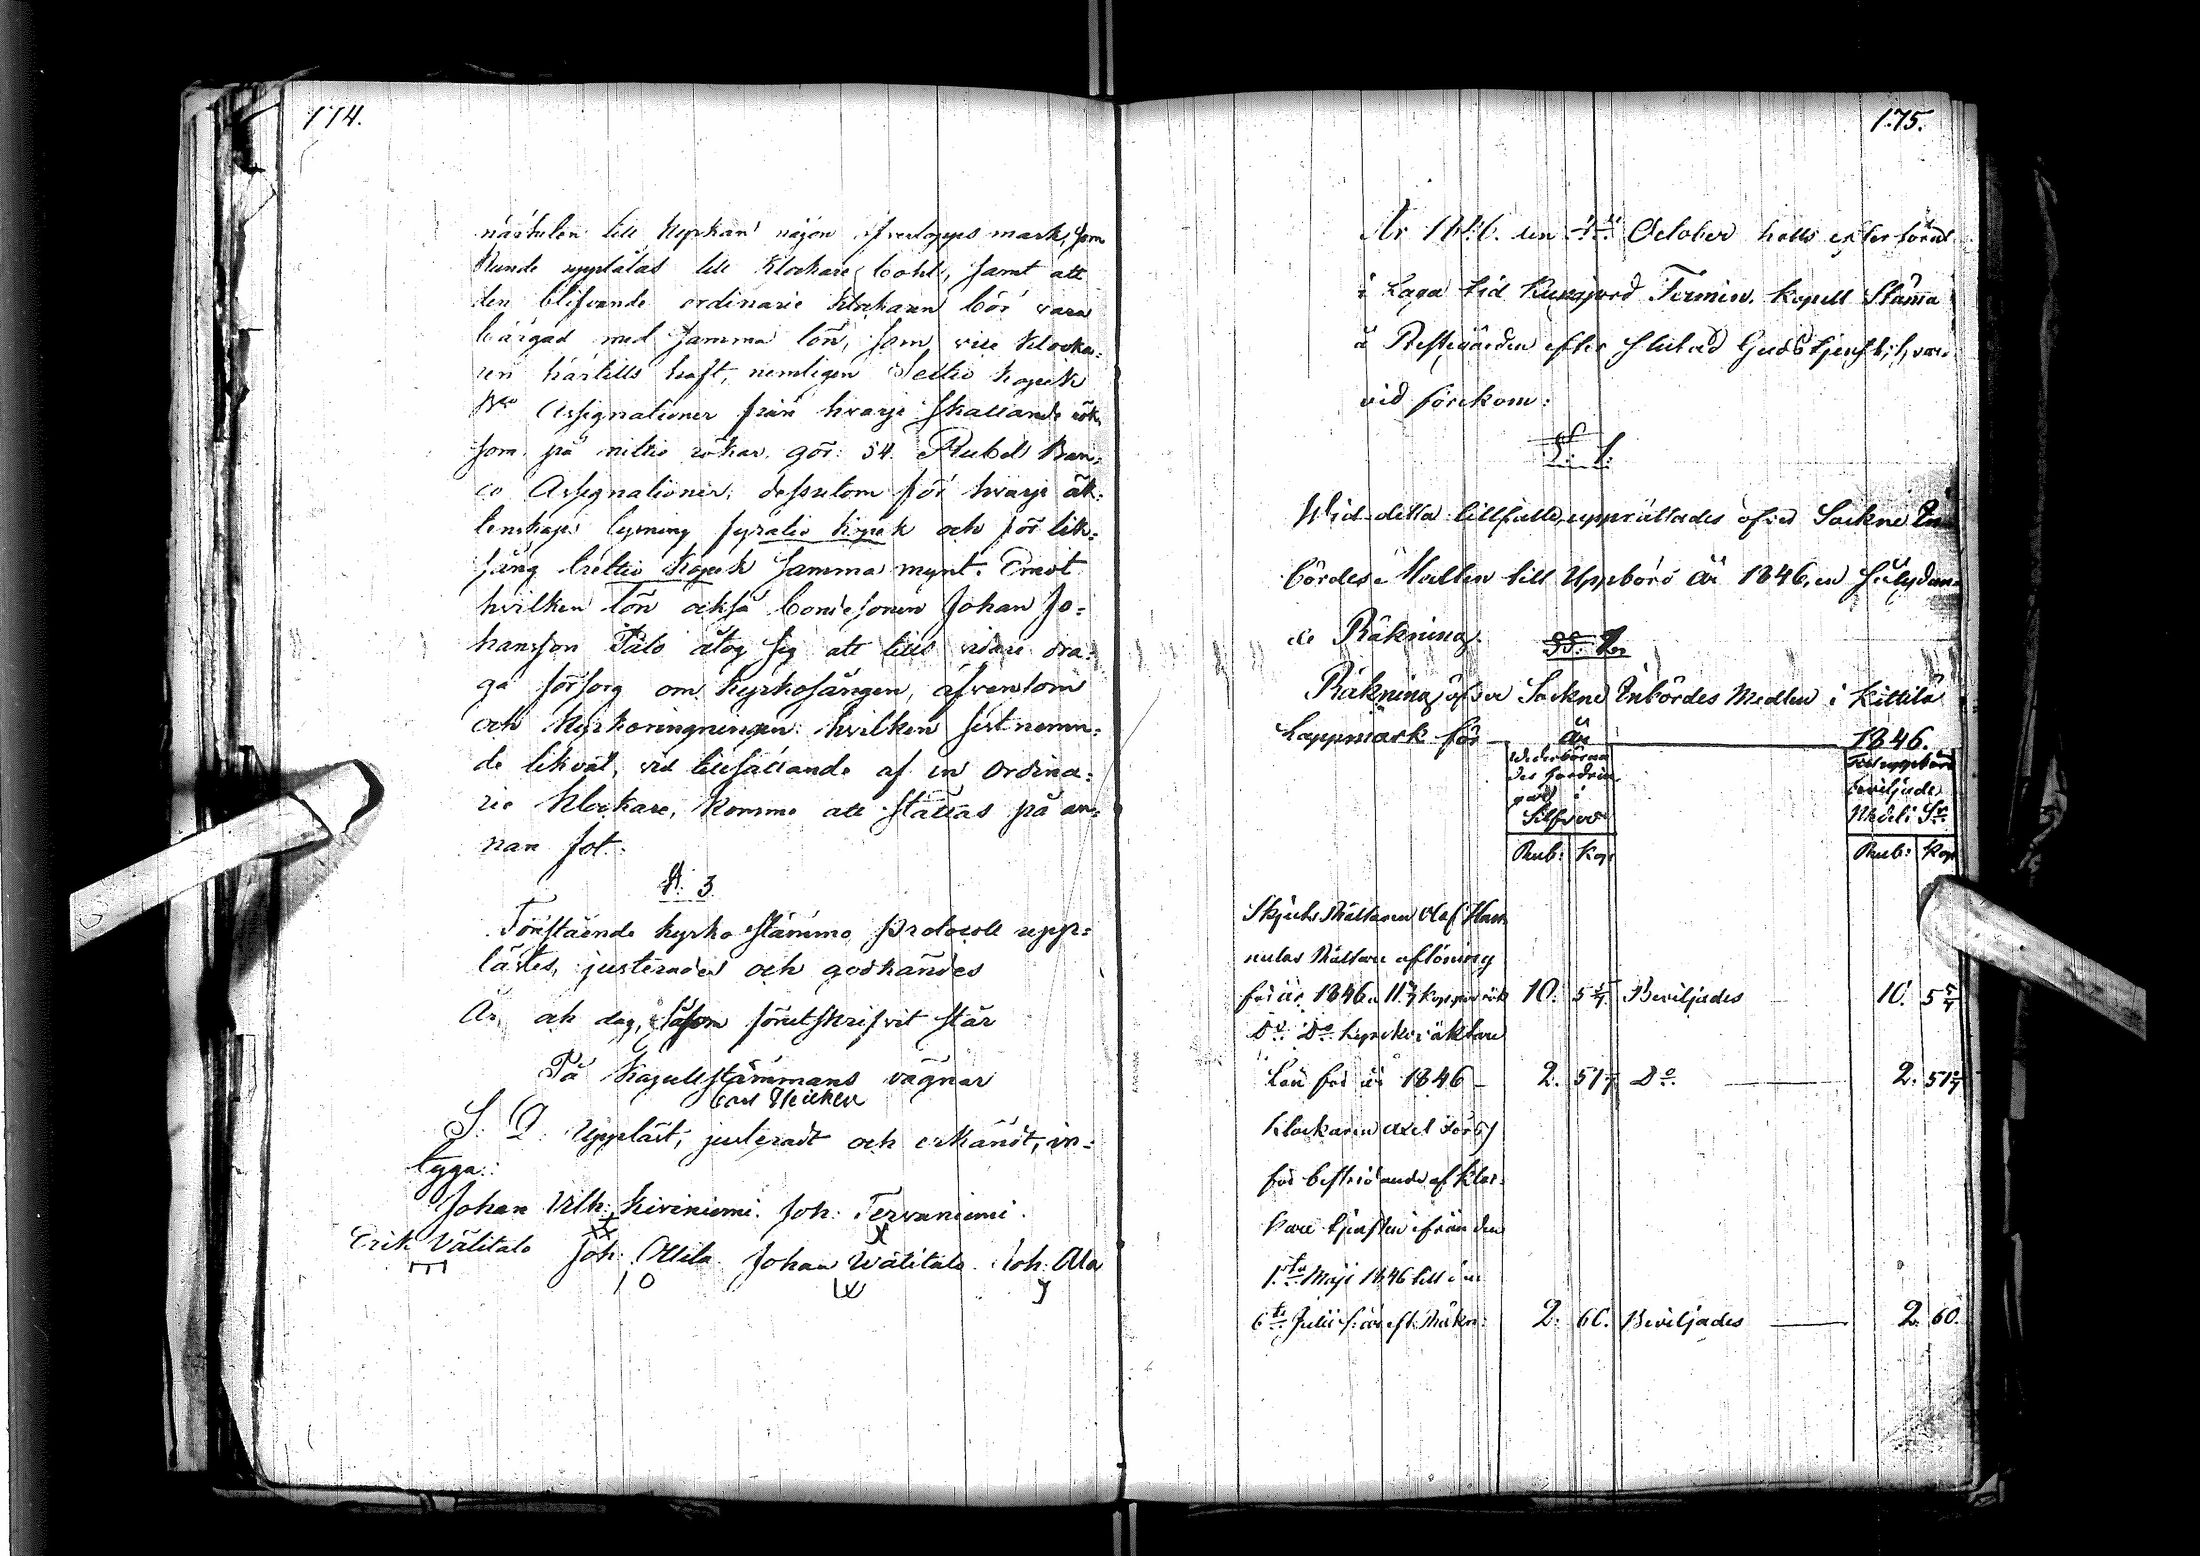 174.
närbelen till Kyrkan någon öfverlopps mark, som
kunde upplåtas till Klockare bohl, samt att
den blifvande ordinarie Klockaren bör vara
bärgad med samma lön, som vice klocka-
ren härtills haft, nemligen Settio kopek
Bco Assignationer från hvarje skattande rök
som på nittio rökar gör: 54 Rubel Ban-
co Assignationer, dessutom för hvarje äk-
tenskaps lysning fyratio kopek och för lik-
sång trettio kopek samma mynt. Emot
hvilken lön också bondesonen Johan Jo-
hansson Palo åtog sig att tills vidare dra-
ga försorg om kyrkosången, äfvensom
och kyrkoringningen: hvilken sistnemn-
de likväl, vid tillsättande af en ordina-
rie klockare, komme att ställas på an-
nan fot.
§. 3
Förestående kyrko Stämmo Protocoll upp-
lästes, justerades och godkändes
År och dag, såsom föruthskrifvit står
På Kapellstämmans vägnar
Carl Heickell
S. D. Uppläst, justeradt och erkändt, in-
tyga:
Johan Vilh: Kiviniemi. Joh: Tervaniemi.
Erik Välitalo Joh: Ollila. Johan Wälitalo. Joh: Ala
175.
År 1846. den October hölls efter förut
i Laga tid kungjord Termin, kapell Stäma
å Prestgården efter slutad Gudstjenst, hvar-
vid förekom:
§. 1.
Wid detta tillfälle, upprättades öfver Sockne In-
bördes Medlen till Uppbörd år 1846, en följdan-
de Räkning.
Räkning öfver Sockne Inbördes Medlen i Kittilä
Lappmark för år 1846.
Wederböran-
des fordrin-
gar i
Silfver
Till uppbörd
beviljade
Medel i Sr.
Rub: Kop: Rub: Kop
Skjuts Rättaren Olaf Han-
nulas Rättare aflöning
för år 1846 a 11 kop per rök 10. 5 5/7 Beviljades 10. 5 5/7
Do: Do:
Lön för år 1846 2. 51 Do. 2. 51
Klockaren Axel Nörby
för bestridande af kloc-
kare tjensten ifrån den
1:sta Maji 1846 till den
6:te Julii s: år eft: Räkn: 2. 60. Beviljades 2. 60.